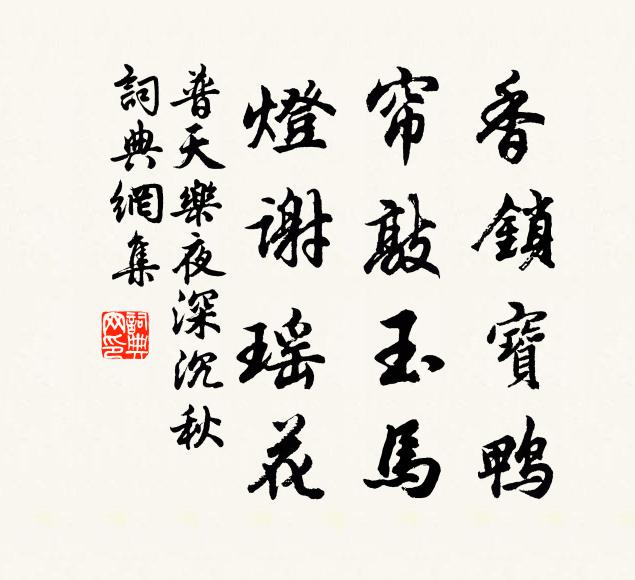 香鎖寶鴨
帘敲玉馬
燈谢瑶花
普天樂夜深沉秋
詞典網集
詞典网印